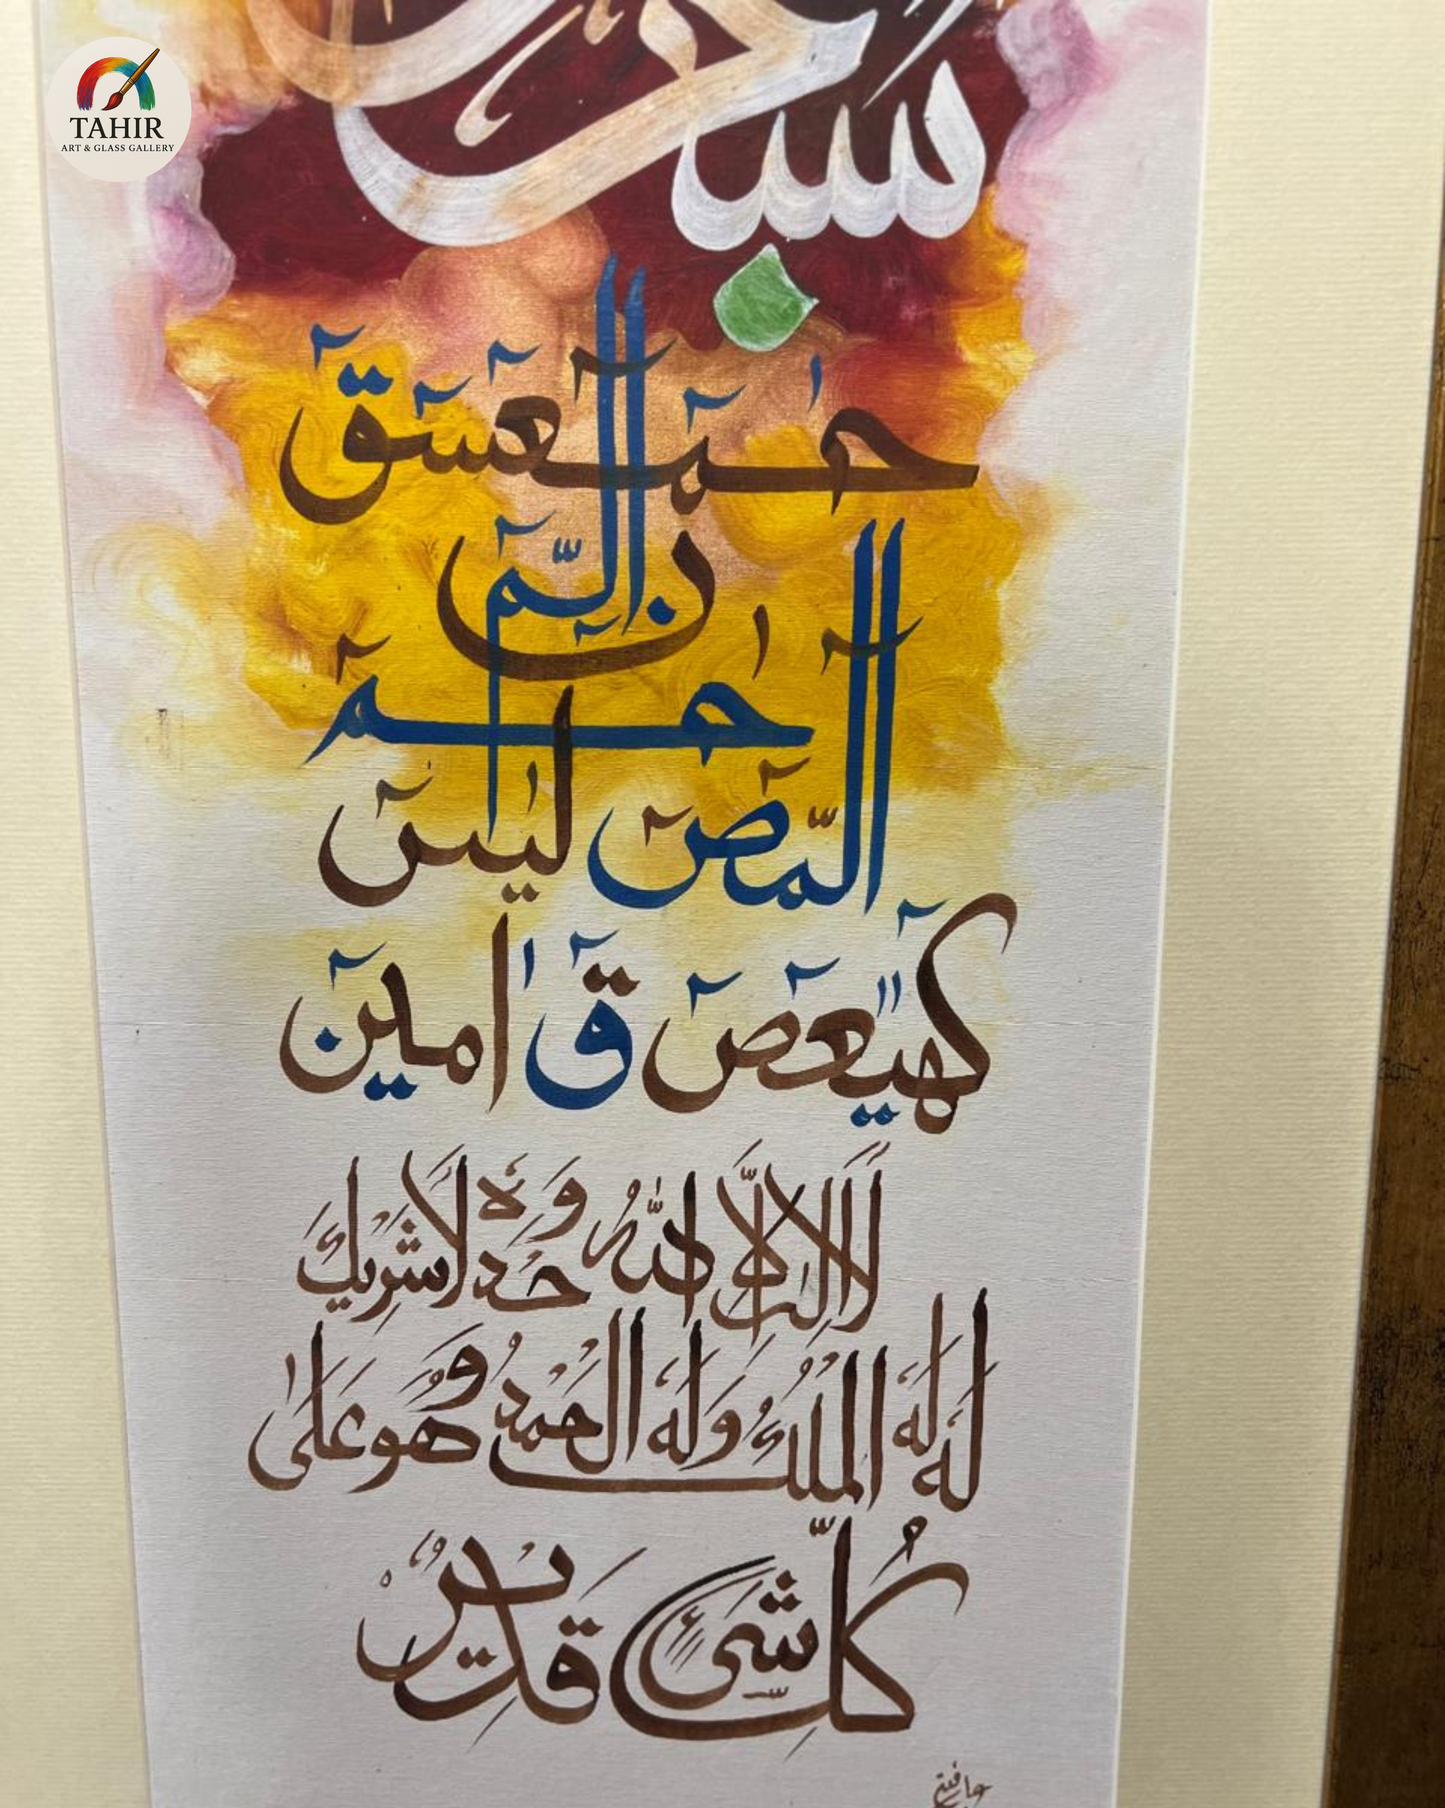 TAHIR
ART & GLASS GALLERY
حٰمٓعٓسٓقٓ
نٓ الٓمّٓ
حٰمٓ
الٓمّٓصٓ يٰسٓ
كٓهٰيٰعٓصٓ قٓ اٰمين
لَا اِلٰهَ اِلَّا اللّٰهُ وَحْدَهٗ لَا شَرِيْكَ
لَهٗ لَهُ الْمُلْكُ وَلَهُ الْحَمْدُ وَهُوَ عَلٰى
كُلِّ شَىْءٍ قَدِيْرٌ